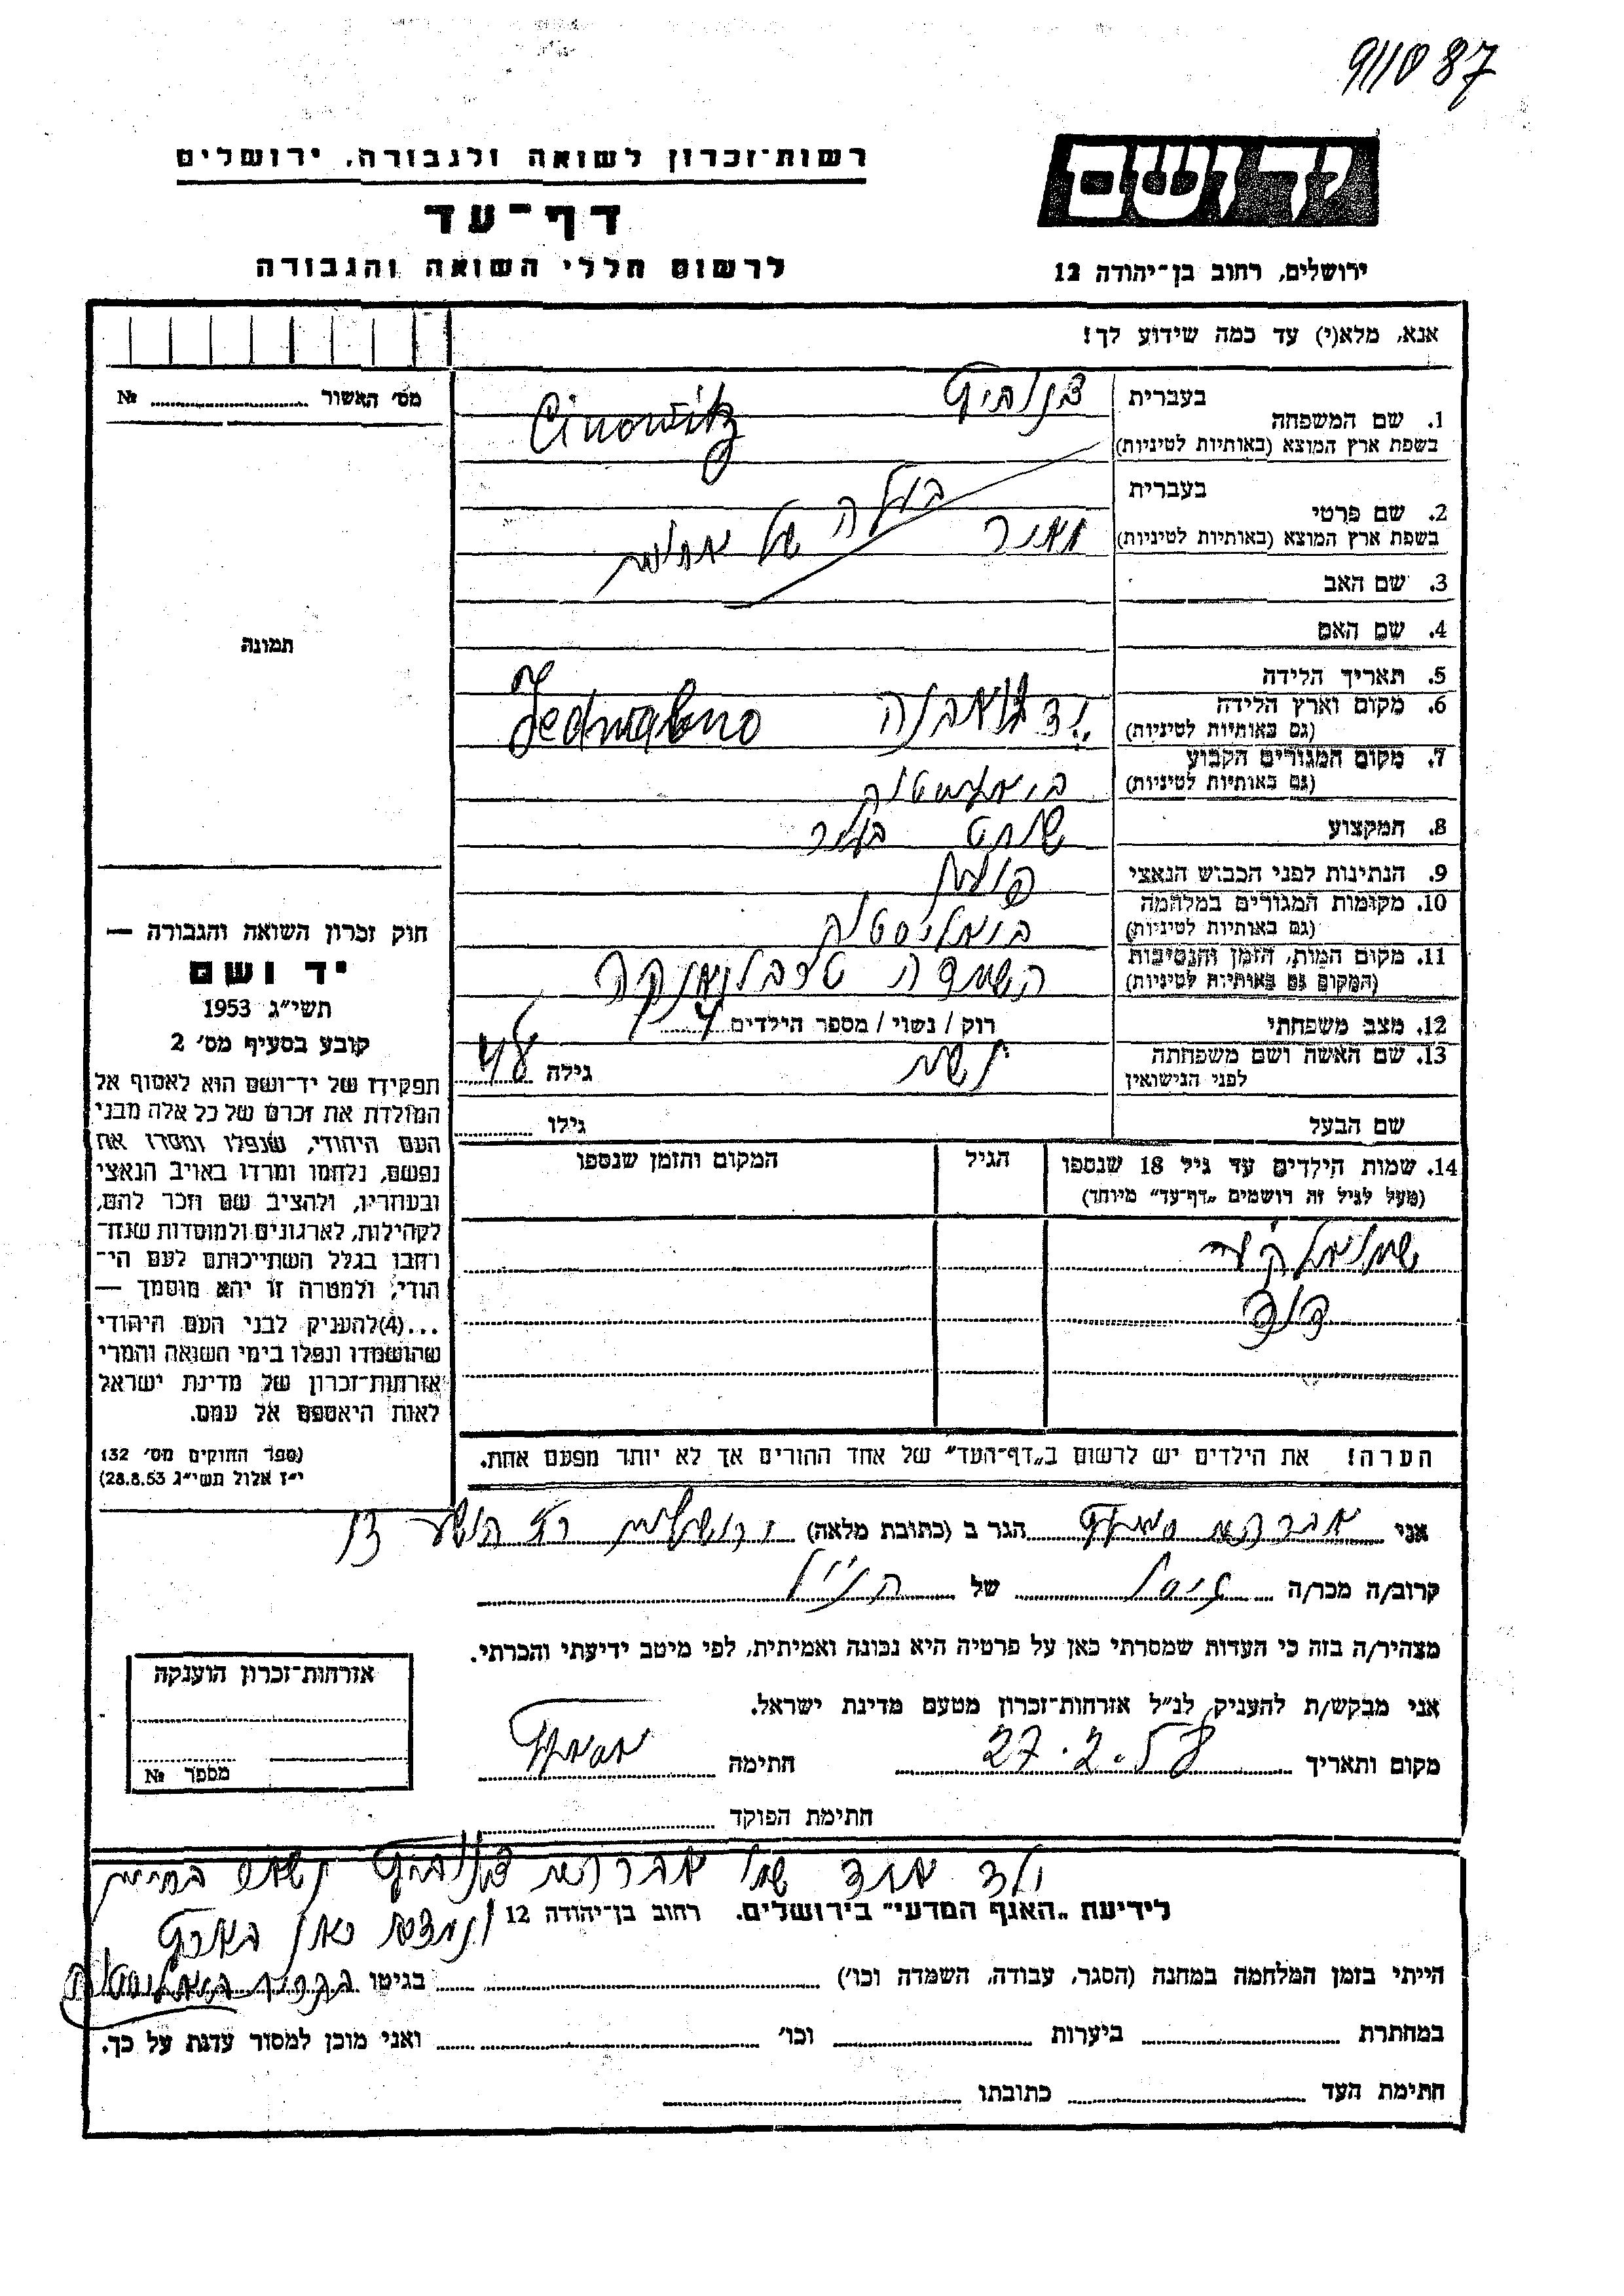 911087
רשות־זכרון לשואה ולגבורה, ירושלים
דף־עד
לרשום חללי השואה והגבורה
יד ושם
ירושלים, רחוב בן־יהודה 12
אנא, מלא(י) עד כמה שידוע לך!
מס׳ האשור № 
תמונה
1. שם המשפחה
בעברית
צינוביץ
בשפת ארץ המוצא (באותיות לטיניות)
Cinowitz
2. שם פרטי
בעברית
בשפת ארץ המוצא (באותיות לטיניות)
מאיר
3. שם האב
4. שם האם
5. תאריך הלידה
6. מקום וארץ הלידה
(גם באותיות לטיניות)
Jedwabno
7. מקום המגורים הקבוע
(גם באותיות לטיניות)
8. המקצוע
שוחט
9. הנתינות לפני הכבוש הנאצי
10. מקומות המגורים במלחמה
(גם באותיות לטיניות)
ביאליסטוק
11. מקום המות, הזמן והנסיבות
(המקום גם באותיות לטיניות)
השמדה טרבלינקה
12. מצב משפחתי
רוק / נשוי / מספר הילדים
13. שם האשה ושם משפחתה
לפני הנישואין
גילה
שם הבעל
גילו
14. שמות הילדים עד גיל 18 שנספו
(מעל לגיל זה רושמים „דף־עד” מיוחד)
הגיל
המקום והזמן שנספו
הערה! את הילדים יש לרשום ב„דף־העד” של אחד ההורים אך לא יותר מפעם אחת.
חוק זכרון השואה והגבורה —
יד ושם
תשי״ג 1953
קובע בסעיף מס׳ 2
תפקידו של יד־ושם הוא לאסוף אל
המולדת את זכרם של כל אלה מבני
העם היהודי, שנפלו ומסרו את
נפשם, נלחמו ומרדו באויב הנאצי
ובעוזריו, ולהציב שם וזכר להם,
לקהילות, לארגונים ולמוסדות שנח־
רחבו בגלל השתייכותם לעם הי־
הודי, ולמטרה זו יהא מוסמך —
...(4)להעניק לבני העם היהודי
שהושמדו ונפלו בימי השואה והמרי
אזרחות־זכרון של מדינת ישראל
לאות היאספם אל עמם.
(ספר החוקים מס׳ 132
י״ז אלול תשי״ג 28.8.53)
אני אברהם הגר ב (כתובת מלאה) ירושלים
קרוב/ה מכר/ה של הנ״ל
מצהיר/ה בזה כי העדות שמסרתי כאן על פרטיה היא נכונה ואמיתית, לפי מיטב ידיעתי והכרתי.
אני מבקש/ת להעניק לנ״ל אזרחות־זכרון מטעם מדינת ישראל.
מקום ותאריך 27.2.58 חתימה
חתימת הפוקד
אזרחות־זכרון הוענקה
מספר №
ילד אחד של אברהם צינוביץ
לידיעת „האגף המדעי” בירושלים. רחוב בן־יהודה 12
ונמצא כאן בארץ
הייתי בזמן המלחמה במחנה (הסגר, עבודה, השמדה וכו׳) בגיטו
במחתרת ביערות וכו׳ ואני מוכן למסור עדות על כך.
חתימת העד כתובתו